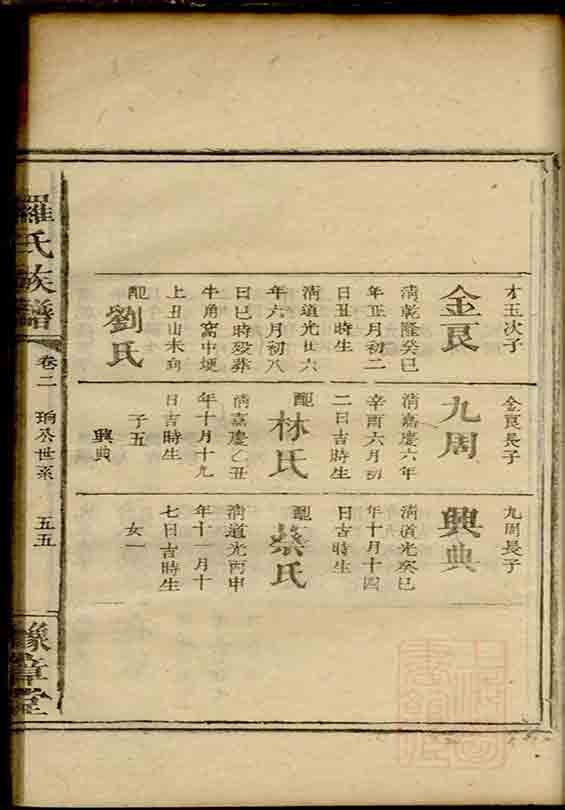 才玉次子
金良
清乾隆癸巳
年正月初二
日丑時生
清道光廿六
年六月初八
日巳時歿葬
牛角窩中埂
上丑山未向
配
劉氏
金良長子
九周
清嘉慶六年
辛酉六月初
二日吉時生
配
林氏
清嘉慶乙丑
年十月十九
日吉時生
子五
興典
九周長子
興典
清道光癸巳
年十月十四
日吉時生
配
蔡氏
清道光丙申
年十一月十
七日吉時生
女一
羅氏族譜
卷二
珦公世系
五五
豫章堂